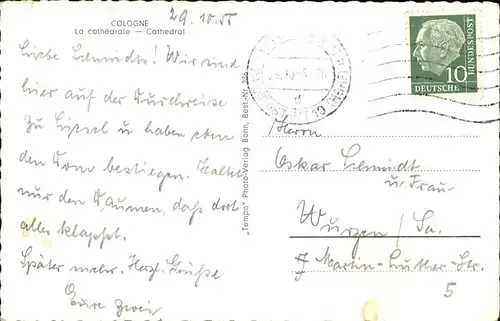 29.10.55
COLOGNE
La cathédrale — Cathedral
Liebe Schmidts! Wir sind
hier auf der Durchreise
zu u haben eben
den bestiegen. Haltet
nur den Daumen, daß dort
alles klappt.
Später mehr. Herzl. Grüße
Eure zwei
„Tempo" Photo-Verlag Bonn, Best.-Nr. 256
d
10
DEUTSCHE
BUNDESPOST
Herrn
Oskar Schmidt
u. Frau
Wurzen / Sa.
Martin-Luther-Str.
5